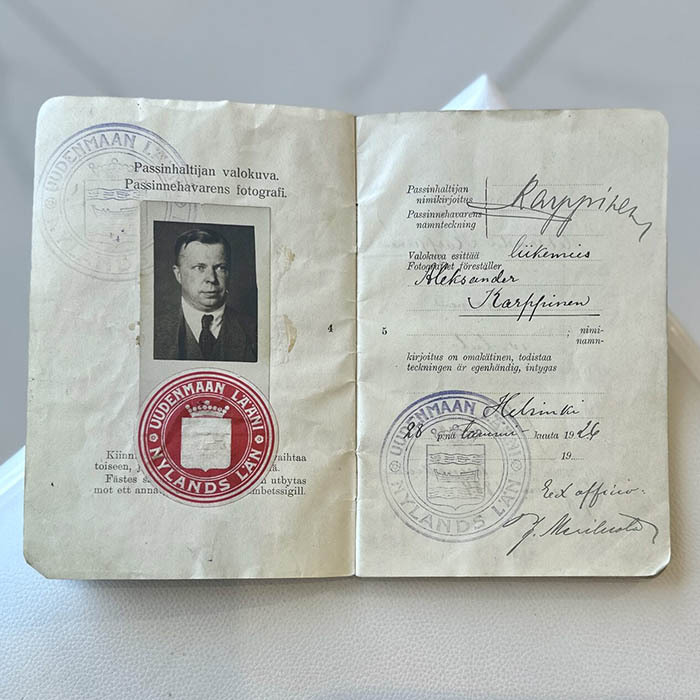 UUDENMAAN LÄÄNI
Passinhaltijan valokuva.
Passinnehavarens fotografi.
4
UUDENMAAN LÄÄNI
NYLANDS LÄN
vaihtaa
toiseen,
Fästes utbytas
mot ett embetssigill.
Passinhaltijan
nimikirjoitus
Passinnehavarens
namnteckning
Karppinen
Valokuva esittää liikemies
Fotografiet föreställer
Aleksander
Karppinen
5
; nimi-
namn-
kirjoitus on omakätinen, todistaa
teckningen är egenhändig, intygas
UUDENMAAN LÄÄNI
NYLANDS LÄN
Helsinki
28 p:nä tammi kuuta 1926
19
Ex officio.